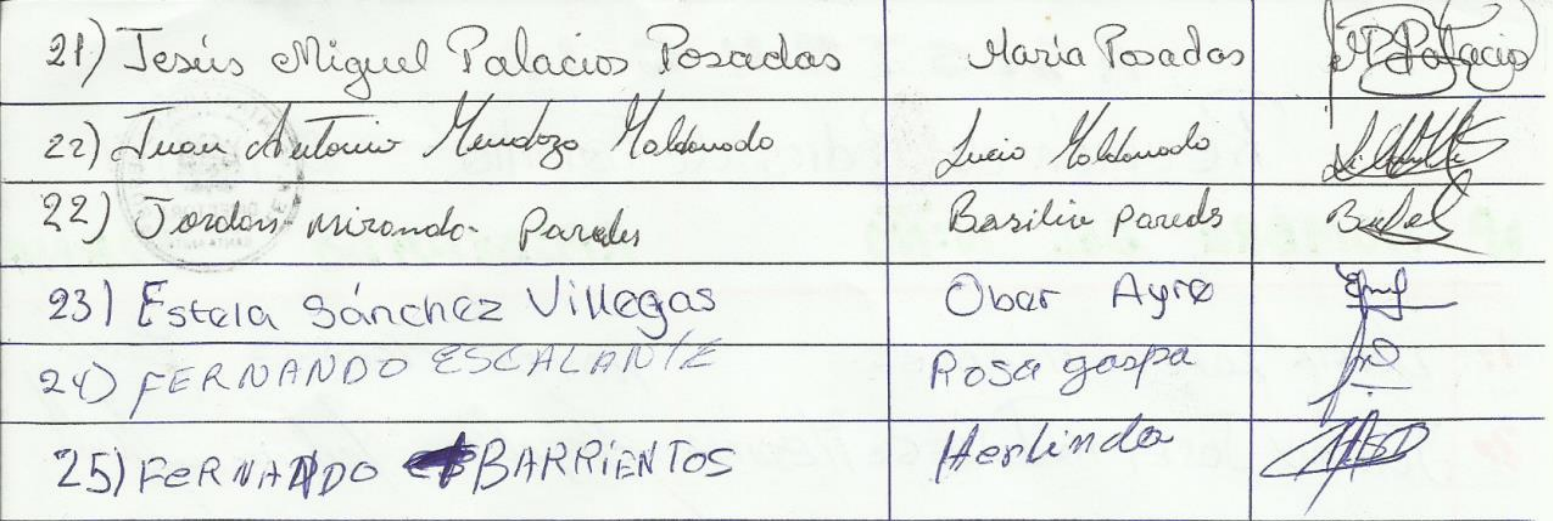 21) Jesús Miguel Palacios Posadas María Posadas M Palacios
22) Juan Antonio Mendoza Maldonado Lucio Maldonado
22) Jordan Miranda Paredes Basilia Pareds
23) Estela Sánchez Villegas Obar Ayre
24) FERNANDO ESCALANTE Rosa gaspa
25) FERNANDO BARRIENTOS Herlinda